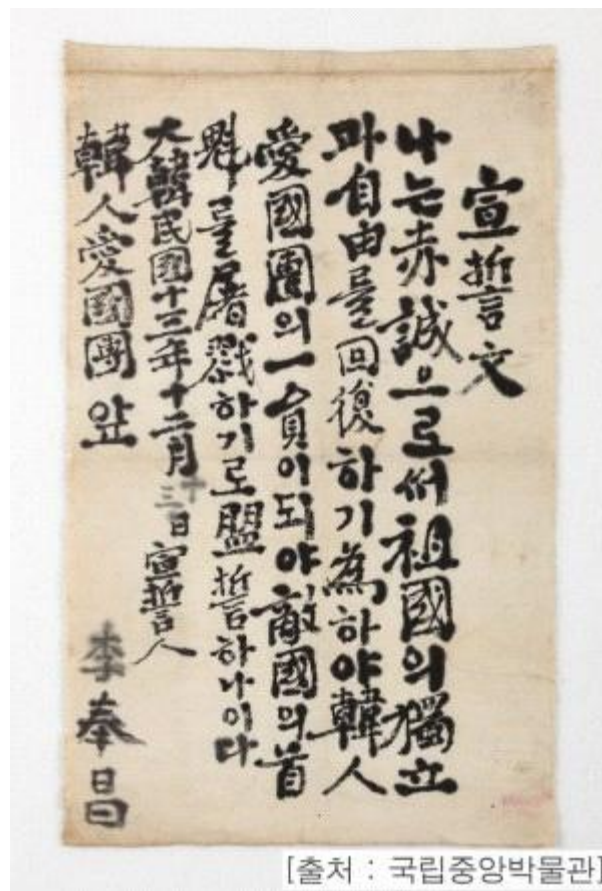 宣誓文
나는赤誠으로써祖國의獨立
과自由를回復하기爲하야韓人
愛國團의一員이되야敵國의首
魁를屠戮하기로盟誓하나이다
大韓民國十三年十二月十三日 宣誓人
李奉昌
韓人愛國團 앞
[출처 : 국립중앙박물관]